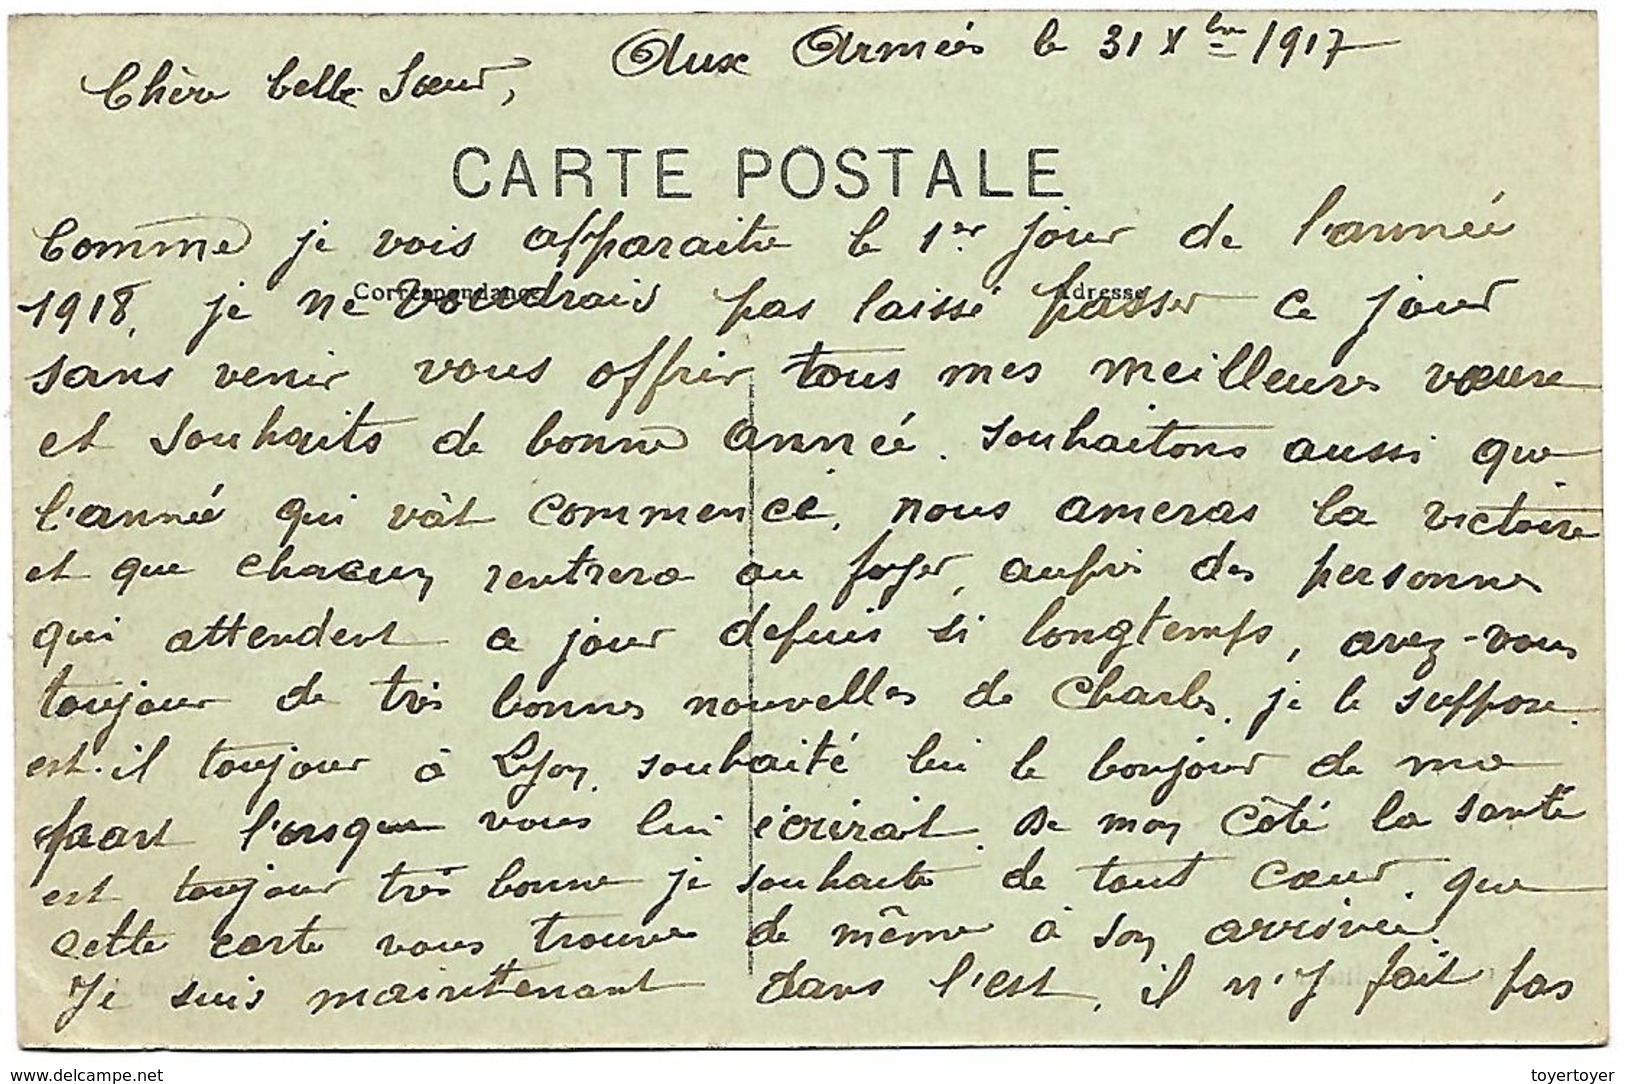 Aux Armées le 31 Xbre 1917
Chère belle Sœur,
CARTE POSTALE
Comme je vois apparaitre le 1er jour de l'année
Correspondance Adresse
1918, je ne voudrais pas laissé passer ce jour
sans venir vous offrir tous mes meilleurs vœux
et souhaits de bonne année. souhaitons aussi que
l'année qui vàt commencé, nous ameras la victoire
et que chacun rentrera au foyer, auprès des personnes
qui attendent ce jour depuis si longtemps, avez-vous
toujour de très bonnes nouvelles de Charles, je le suppose.
est-il toujour à Lyon, souhaité lui le bonjour de ma
part l'orsque vous lui écrirait. De mon côté la santé
est toujour très bonne je souhaite de tout cœur, que
cette carte vous trouve de même à son arrivée.
Je suis maintenant dans l'est, il n'y fait pas
www.delcampe.net
toyertoyer